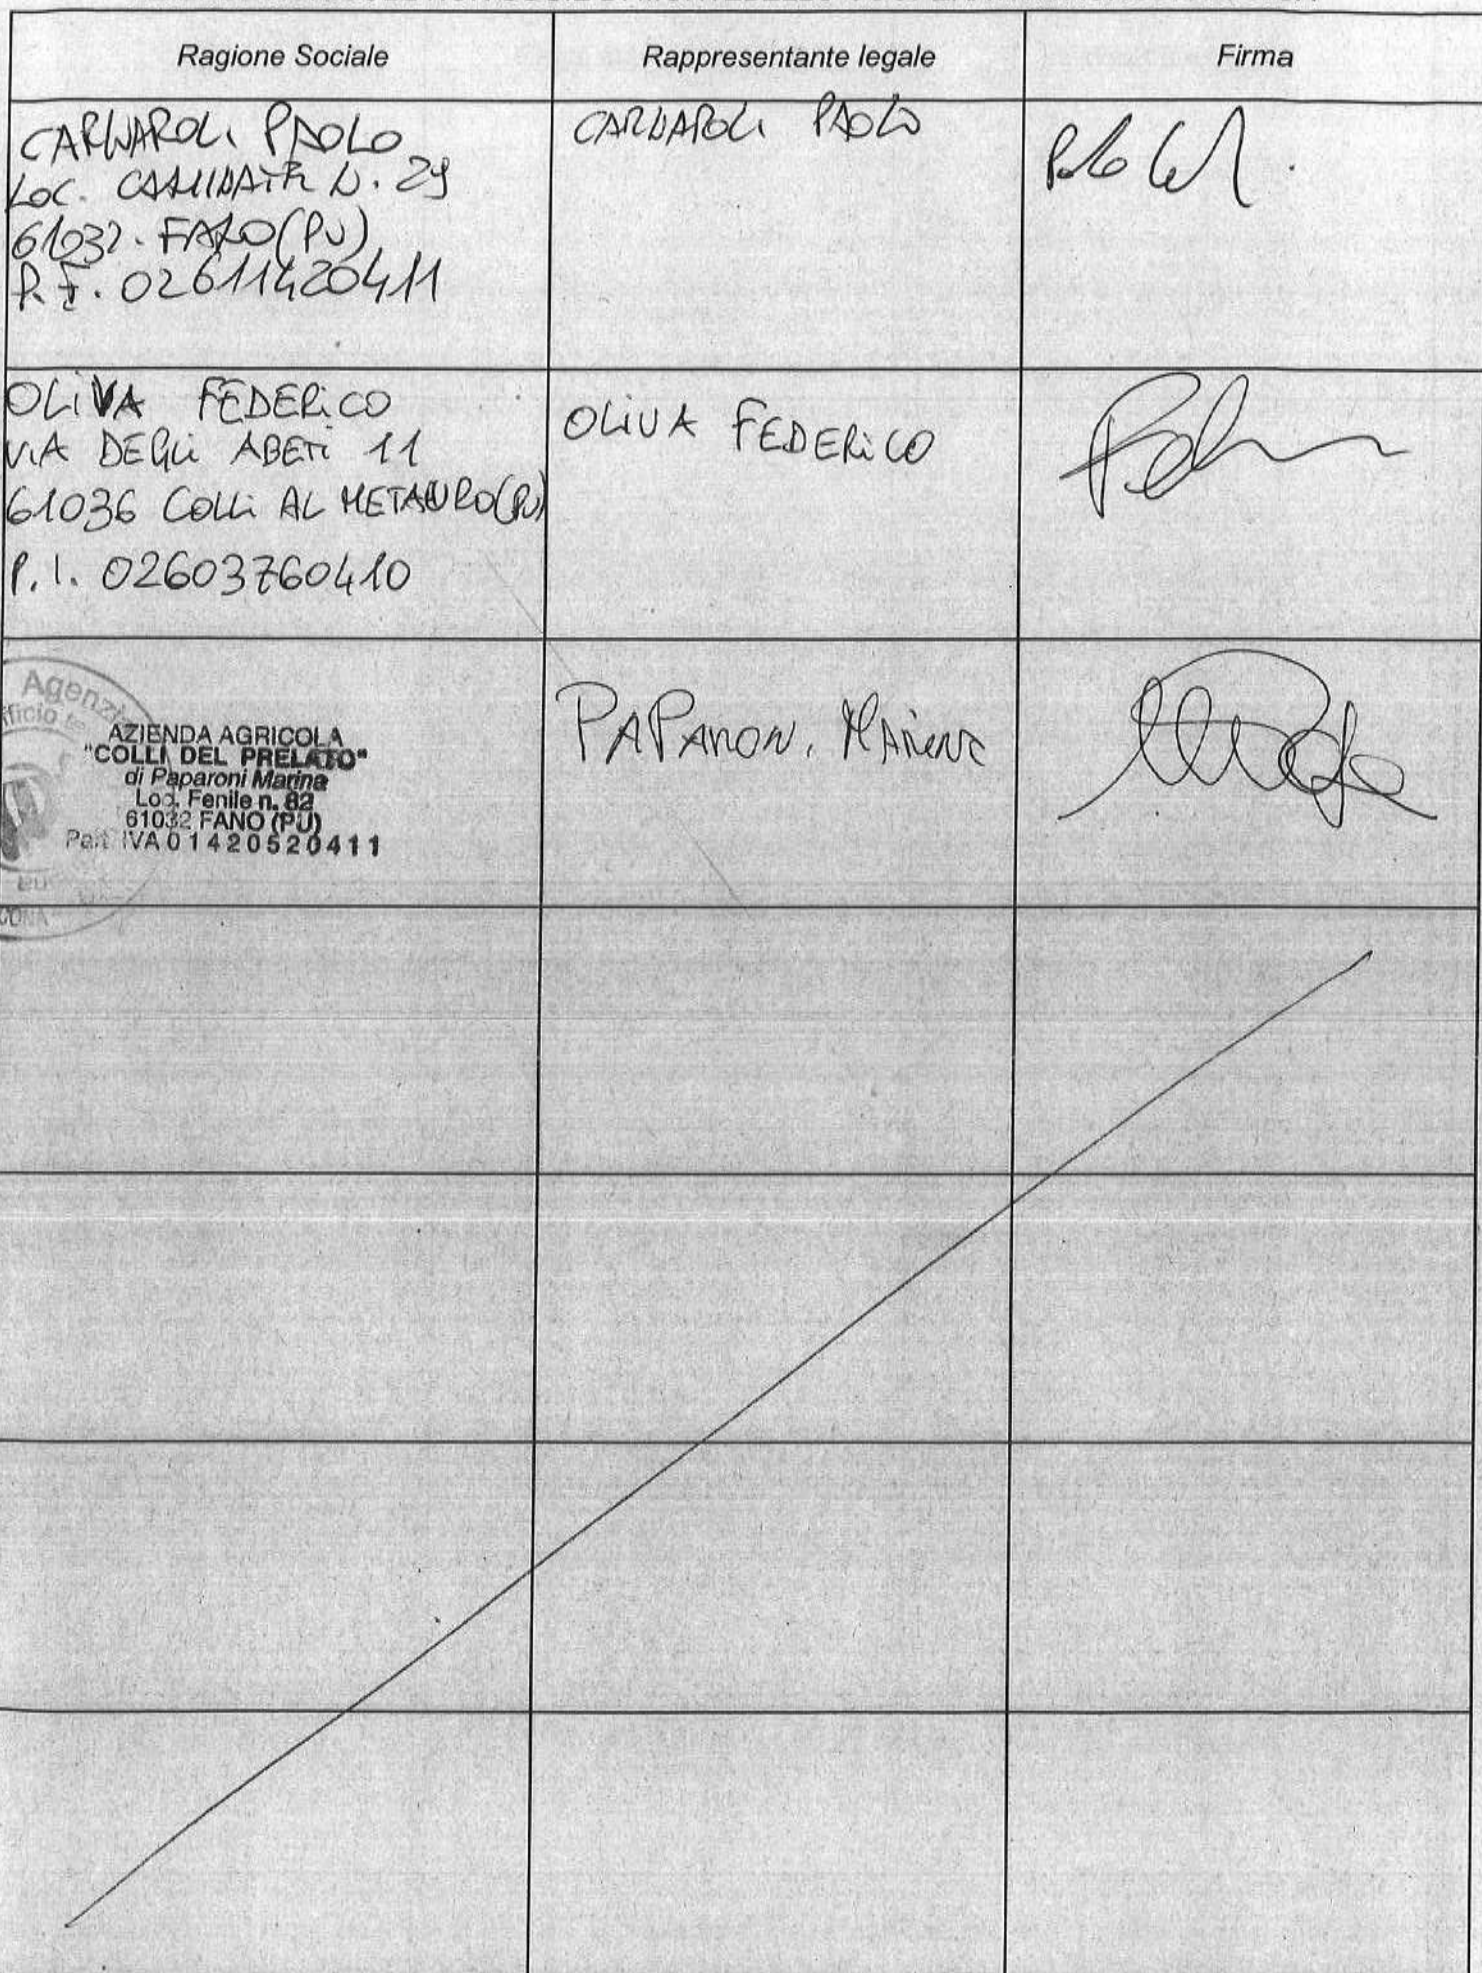 Ragione Sociale
Rappresentante legale
Firma
CARNAROLI PAOLO
LOC. CAMINATE N. 29
61032. FANO (PU)
P.I. 02611420411
CARNAROLI PAOLO
OLIVA FEDERICO
VIA DEGLI ABETI 11
61036 COLLI AL METAURO (PU)
P.I. 02603760410
OLIVA FEDERICO
Agenzia
AZIENDA AGRICOLA
"COLLI DEL PRELATO"
di Paparoni Marina
Loc. Fenile n. 82
61032 FANO (PU)
Part. IVA 01420520411
PAPARONI MARINA